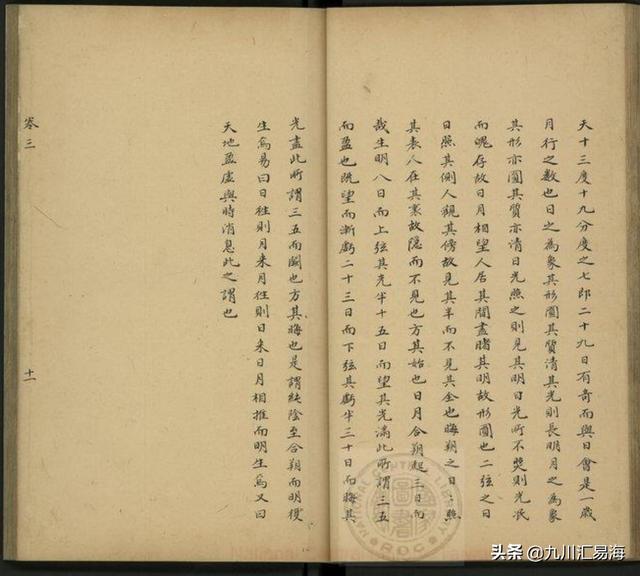 天十三度十九分度之七郎二十九日有奇而與日會是一歲
月行之數也日之為象其形圓其質清其光則長明月之為象
其形亦圓其質亦清日光照之則見其明日光所不及則光泯
而魄存故日月相望人居其間盡睹其明故形圓也二弦之日
日照其側人觀其傍故見其半而不見其全也晦朔之日日照
其表人在其裏故隱而不見也方其始也日月合朔起三日而
哉生明八日而上弦其光半十五日而望其光滿此所謂三五
而盈也既望而漸虧二十三日而下弦其虧半三十日而晦其
光盡此所謂三五而闕也方其晦也是謂純陰至合朔而明復
生焉易曰日往則月来月往則日来日月相推而明生焉又曰
天地盈虛與時消息此之謂也
卷三
十一
頭条 @九川汇易海